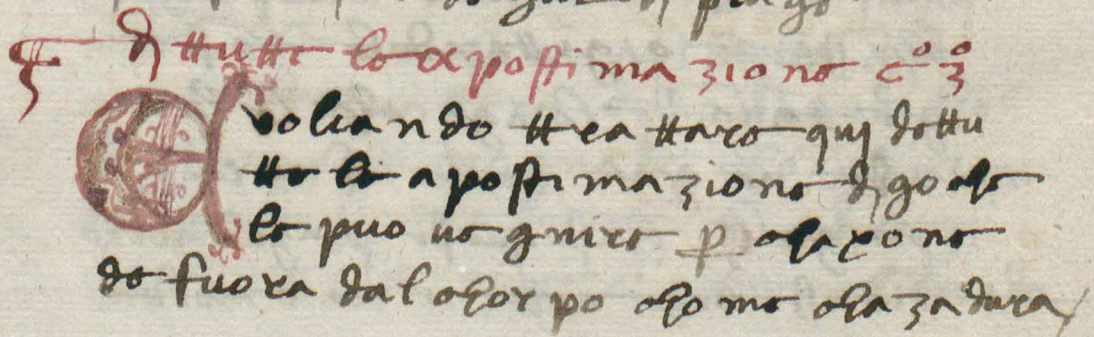 ¶ di ttutte le apostimazione co 3o
E voleando ttrattare quj dettu
tte le apostimazione di go che
le puo ue gnire p chaxone
de fuora dal chorpo chome chazadura